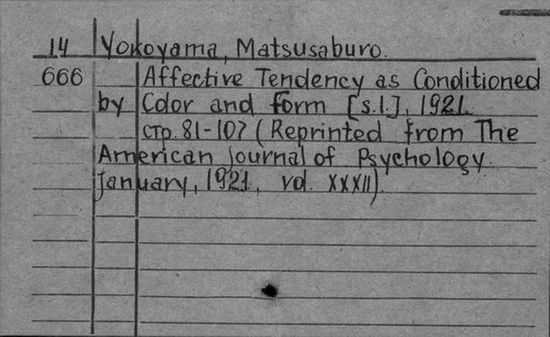 14 Yokoyama, Matsusaburo.
666 Affective Tendency as Conditioned
by Color and form [s.l.], 1921.
стр. 81-107 (Reprinted from The
American journal of Psychology.
January, 1921, vol. XXXII).